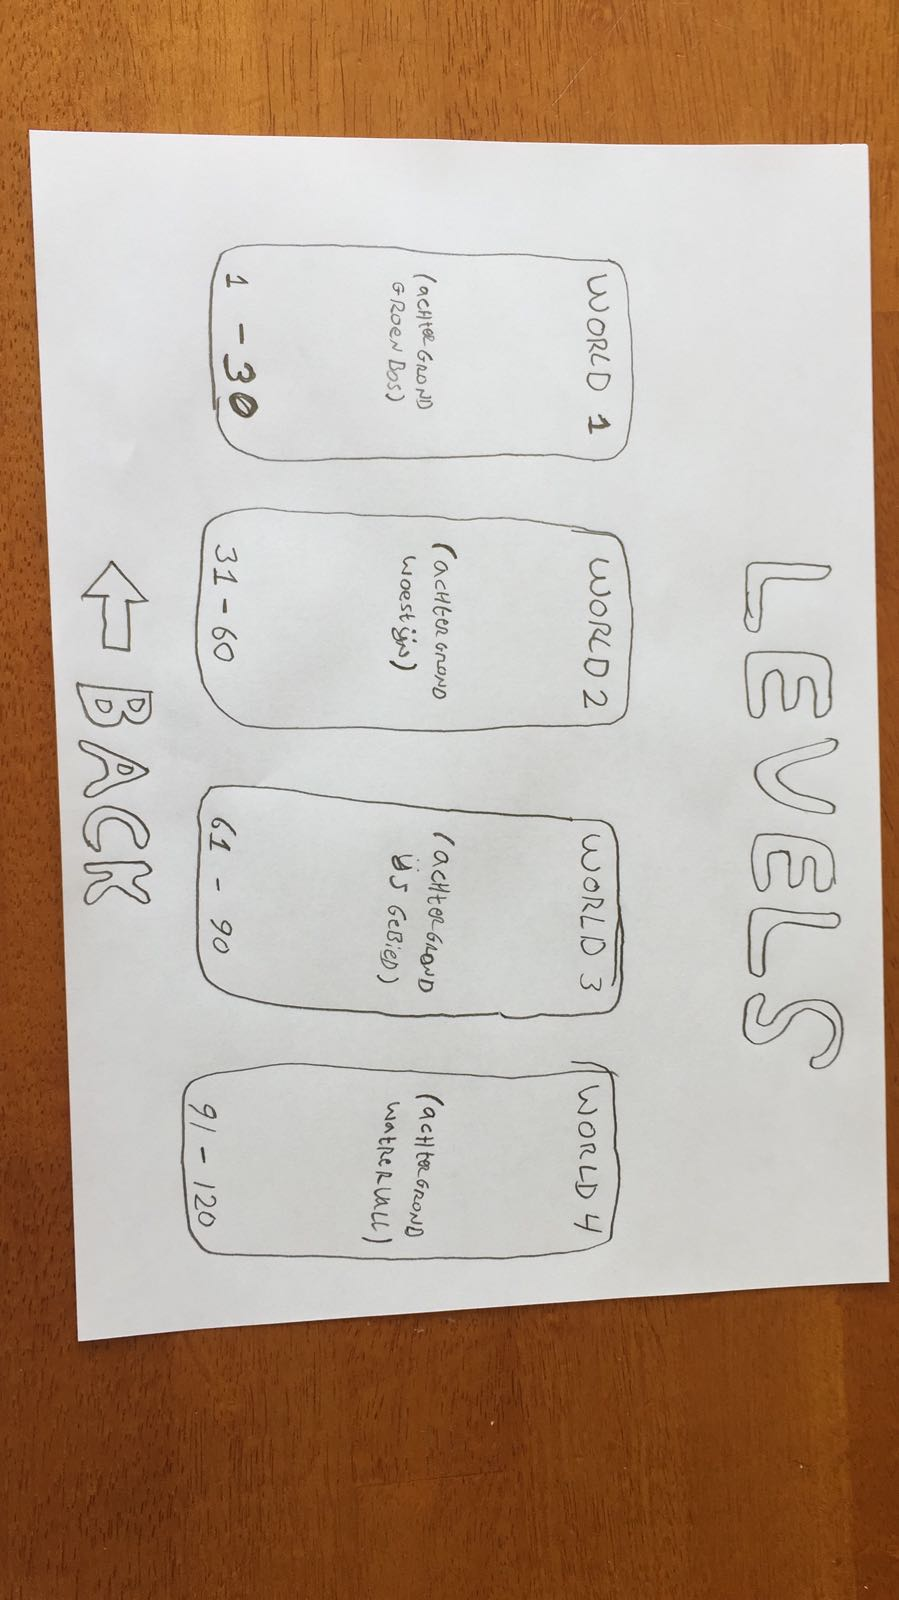 LEVELS
WORLD 1
(acHterGROND
GROEN BOS)
1 - 30
WORLD 2
(acHterGROND
woestijn)
31 - 60
WORLD 3
(acHterGROND
ijs GeBieD)
61 - 90
WORLD 4
(acHterGROND
watrervall)
91 - 120
BACK